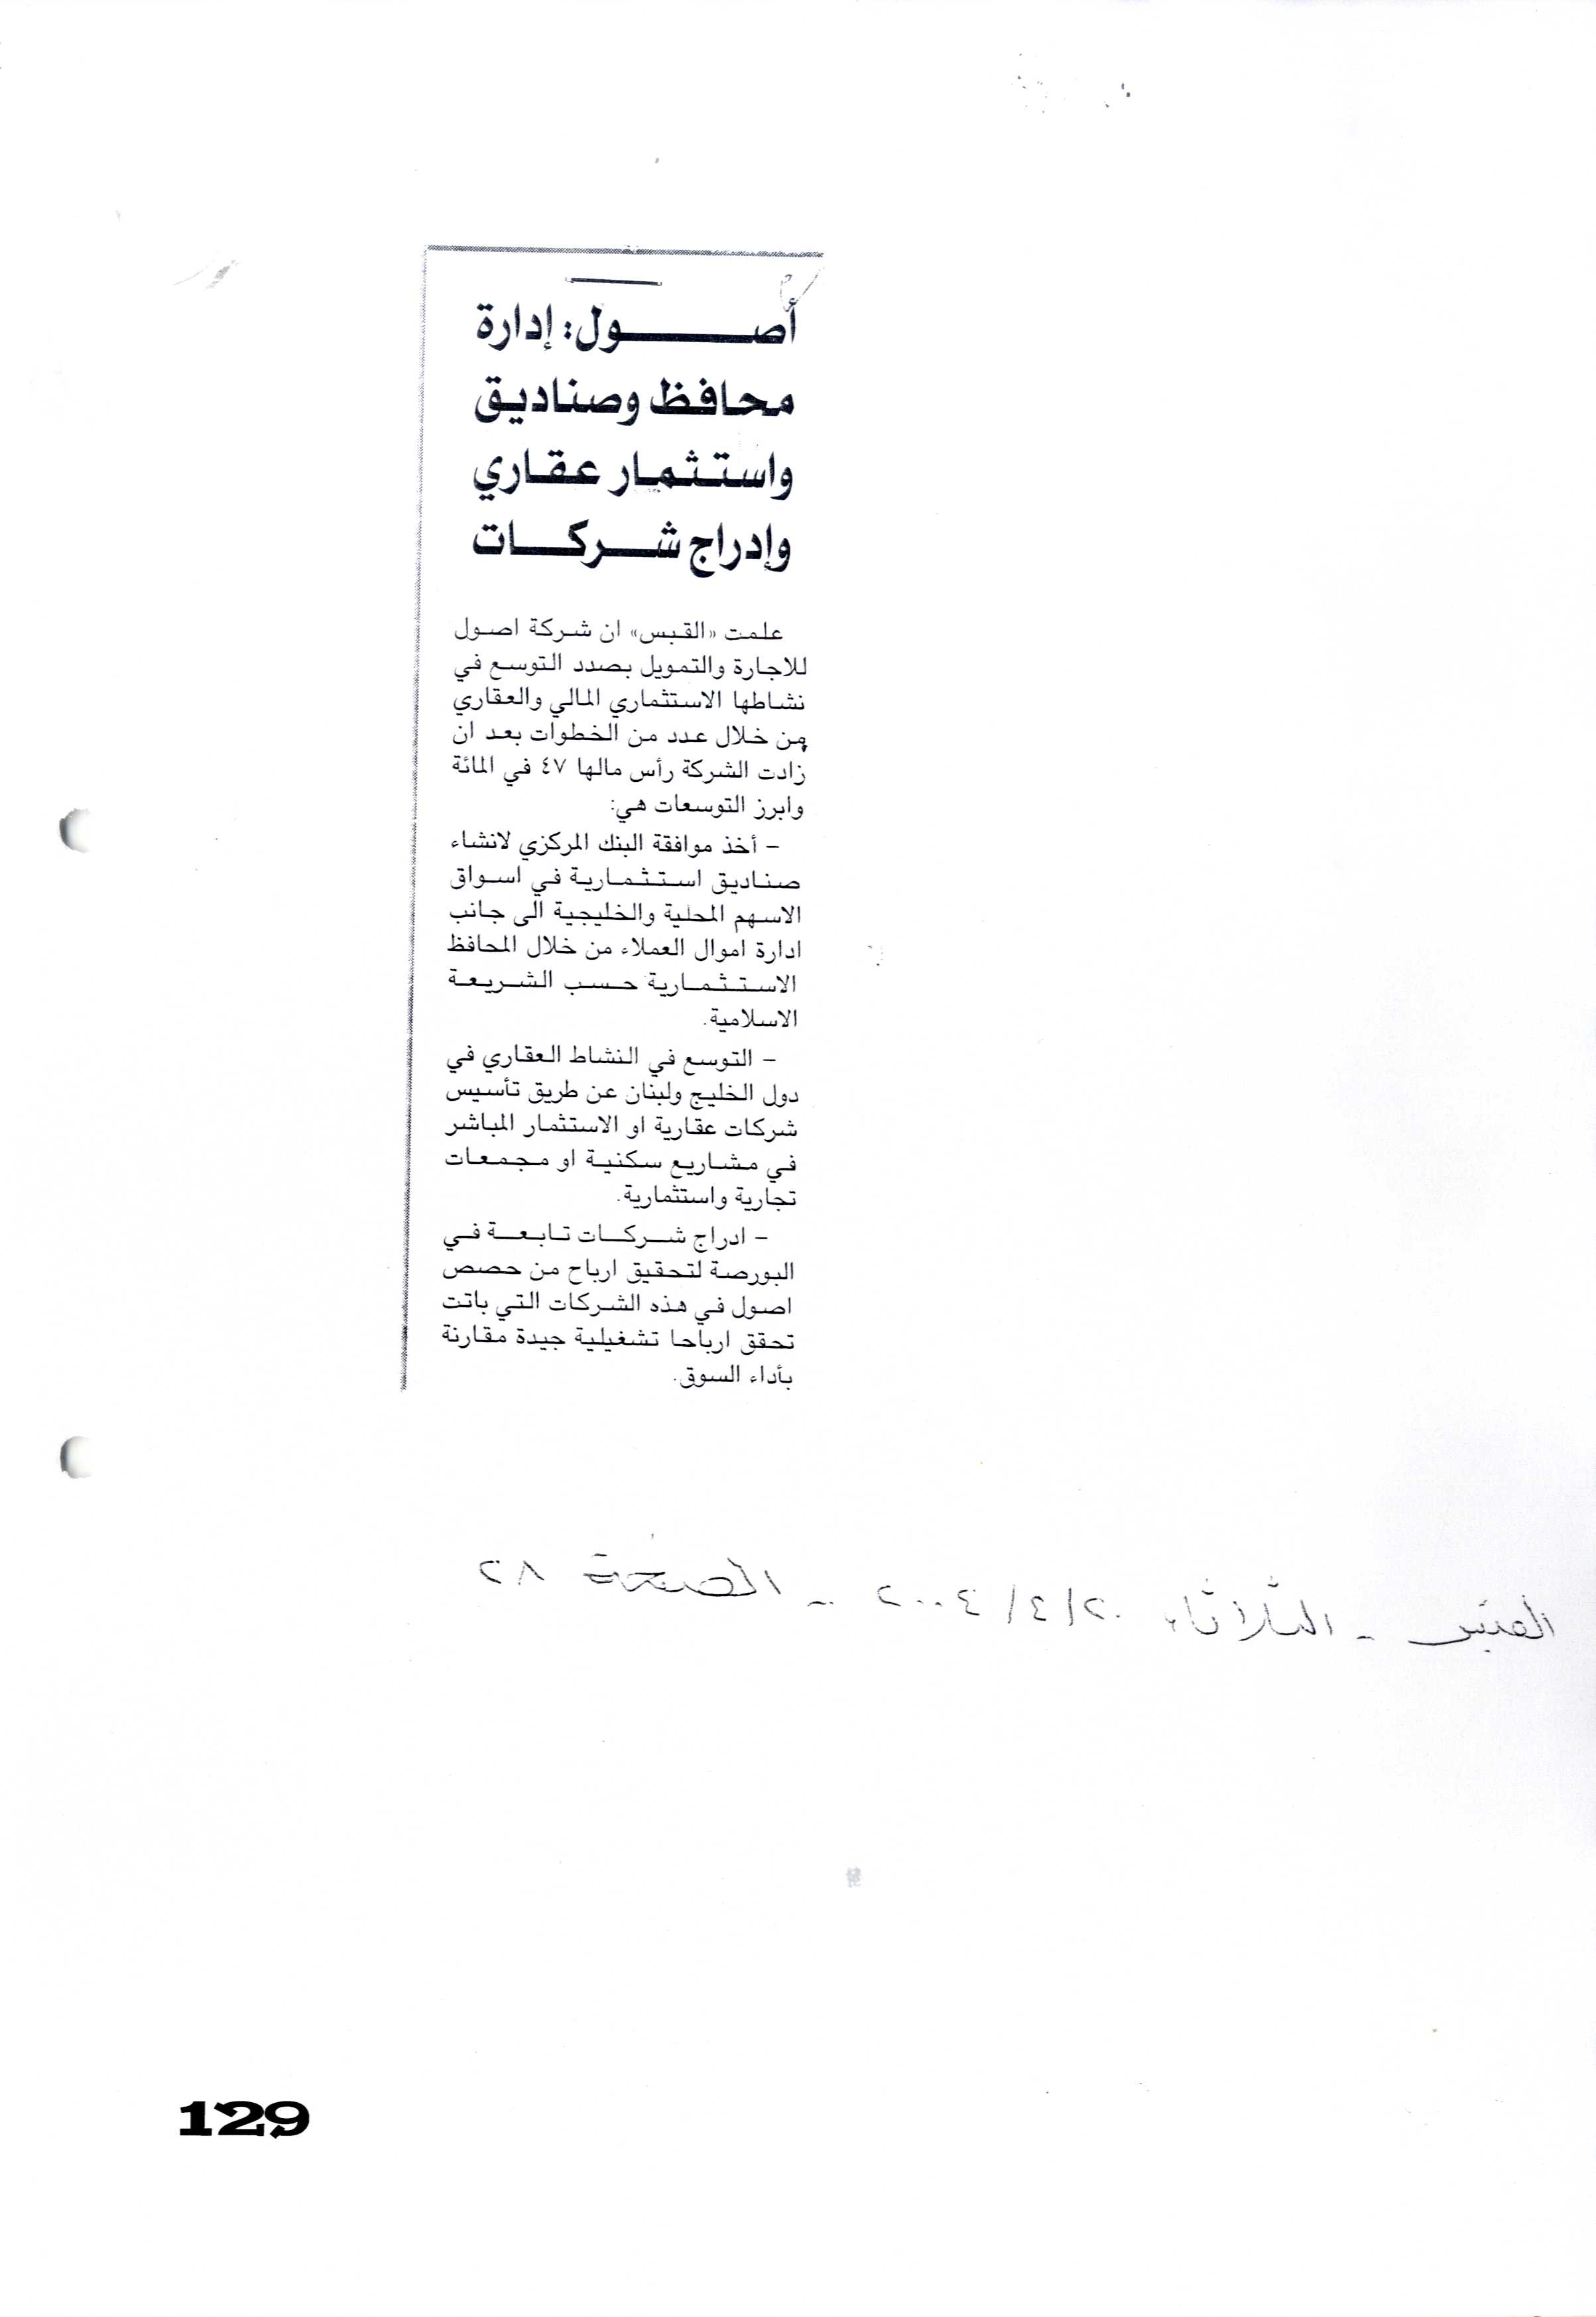 أصول: إدارة
محافظ وصناديق
واستثمار عقاري
وإدراج شركات
علمت «القبس» ان شركة اصول
للاجارة والتمويل بصدد التوسع في
نشاطها الاستثماري المالي والعقاري
من خلال عدد من الخطوات بعد ان
زادت الشركة رأس مالها ٤٧ في المائة
وابرز التوسعات هي:
– أخذ موافقة البنك المركزي لانشاء
صناديق استثمارية في اسواق
الاسهم المحلية والخليجية الى جانب
ادارة اموال العملاء من خلال المحافظ
الاستثمارية حسب الشريعة
الاسلامية.
– التوسع في النشاط العقاري في
دول الخليج ولبنان عن طريق تأسيس
شركات عقارية او الاستثمار المباشر
في مشاريع سكنية او مجمعات
تجارية واستثمارية.
– ادراج شركات تابعة في
البورصة لتحقيق ارباح من حصص
اصول في هذه الشركات التي باتت
تحقق ارباحا تشغيلية جيدة مقارنة
بأداء السوق.
القبس - الثلاثاء ٢٠/٤/٢٠٠٤ - الصفحة ٢٨
129